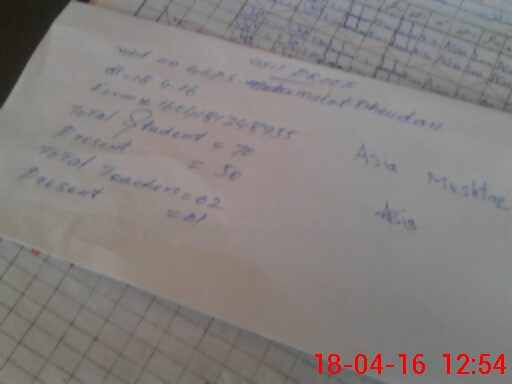 VISIT PROOF
visit on GGPS
dt = 18.4.16
Form # 1604181248955
Total Student = 70
Present = 50
Total Teachers = 02
Present = 01
Asia Mushtaq
Asia
18-04-16 12:54